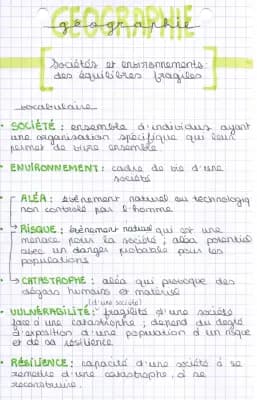 GEOGRAPHIE
géographie
Sociétés et environnements :
des équilibres fragiles
vocabulaire
• SOCIÉTÉ : ensemble d'individus ayant
une organisation spécifique qui leur
permet de vivre ensemble
• ENVIRONNEMENT : cadre de vie d'une
société
• ALÉA : évènement naturel ou technologiq
non controlé par l'homme
→ RISQUE : évènement naturel qui est une
menace pour la société ; aléa potentiel
avec un danger probable pour les
populations
↳ CATASTROPHE : aléa qui provoque des
dégats humains et matériel
(d'une société)
• VULNÉRABILITÉ : fragilité d'une société
face à une catastrophe ; dépend du degré
d'exposition d'une population à un risque
et de sa résilience
• RÉSILIENCE : capacité d'une société à se
remettre d'une catastrophe, à se
reconstruire.